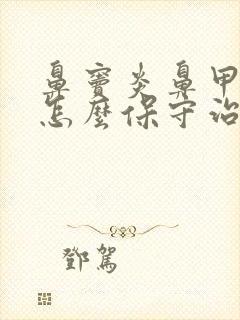 鼻竇炎鼻甲
怎麼保守治
鄧駕